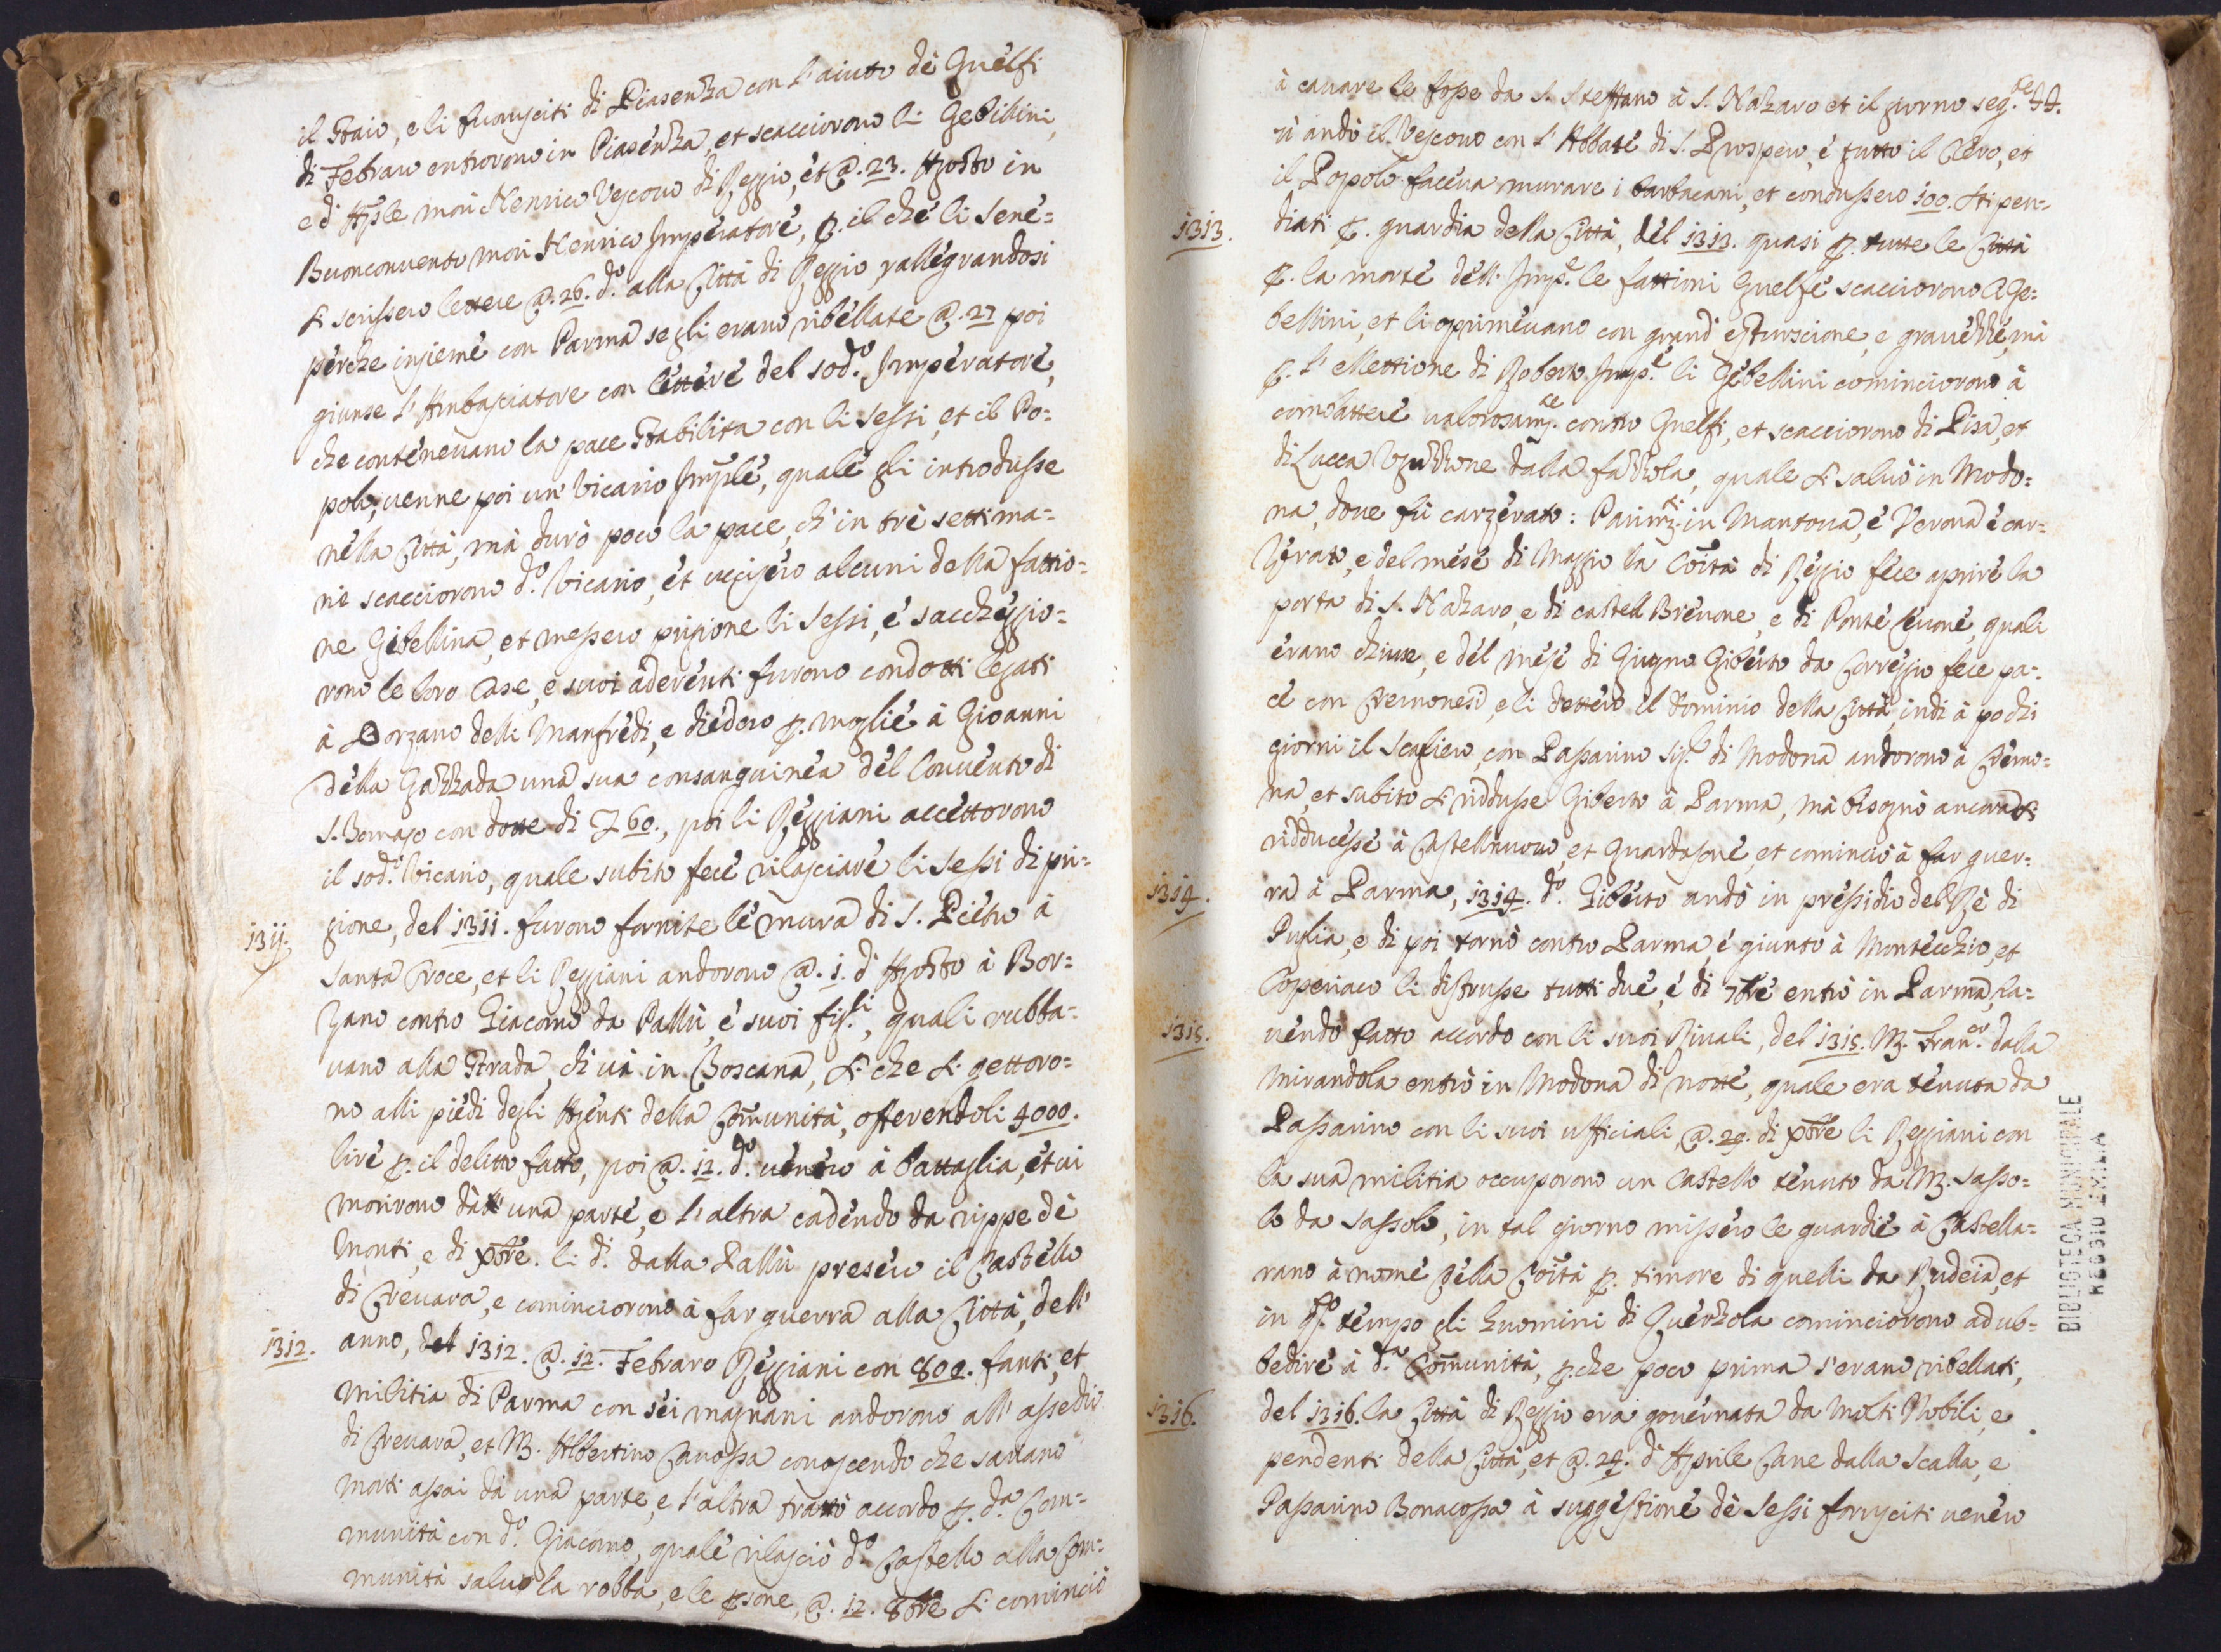 il staio, e li fuorusciti di Piasenza con l'aiuto dè Guelfi
di Febraro entrorono in Piasenza, et scacciorono li Gebillini,
e d' Aple morì Henrico Vescovo di Reggio, et @. 23. Agosto in
Buonconvento morì Henrico Imperatore, p. il che li Sene=
si scrissero lettere @. 26. do. alla Città di Reggio, rallegrandosi
perche insieme con Parma segli erano ribellate @. 27 poi
giunse l'Ambasciatore con lettere del sodo. Imperatore,
che contenevano la pace stabilita con li Sessi, et il Po=
polo, venne poi un' Vicario Imple, quale gli introdusse
nella Città, mà durò poco la pace, ch' in trè settima=
ne scacciorono do. Vicario, et uccisero alcuni della fattio=
ne Gibellina, et messero prigione li Sessi, e saccheggio=
rono le loro Case, e suoi aderenti furono condotti legati
à Borzano delli Manfredi, e diedero p. moglie à Gioanni
della Gazzada una sua consanguinea del Convento di
S. Tomaso con dotte di £ 60., poi li Reggiani accettorono
il sodo. Vicario, quale subito fece rilasciare li Sessi di pri=
1311. gione, del 1311. furono fornite le mura di S. Pietro à
Santa Croce, et li Reggiani andorono @. 1. d' Agosto à Bor=
zano contro Giacomo da Pallù, e suoi figli, quali rubba=
vano alla strada, ch' và in Toscana, si che si gettoro=
no alli piedi degli Agenti della Comunità, offerendoli 4000.
lire p. il delitto fatto, poi @. 12. do. venero à battaglia, et vi
morirono dà una parte, e l'altra cadendo da rippe dè
Monti, e di xbre. li di. dalla Pallù presero il Castello
di Crevara, e cominciorono à far guerra alla Città, dell'
1312. anno, del 1312. @. 12. Febraro Reggiani con 800. fanti, et
militia di Parma con sei magnani andorono all' assedio
di Crevara, et M. Albertino Canossa conoscendo che sariano
morti assai dà una parte, e l'altra trattò accordo p. da. Com=
munità con do. Giacomo, quale rilasciò do. Castello alla Com=
munità salvo la robba, e le psone, @. 12. 8bre si cominciò
à cavare le fosse da S. Steffano à S. Nazaro et il giorno seg.te 44.
vi andò il Vescovo con l' Abbate di S. Prospero, e tutto il Clero, et
il Popolo faceva murare i barbacani, et condussero 100. stipen=
1313. diati p. guardia della Città, del 1313. quasi p. tutte le Città
p. la morte dell' Imp.e le fattioni Guelfe scacciorono Ge=
bellini, et li oprimevano con grand' esturscione, e gravezze, mà
p. l' ellettione di Roberto Imp.e li Gebellini cominciorono à
combattere valorosam.te contro Guelfi, et scacciorono di Pisa, et
di Lucca Uguzzone dalla Fazzola, quale si salvò in Modo=
na, dove fù carzerato: Parim.ti in Mantova, e Verona è car=
zerato, e del mese di Maggio la Coità di Reggio fece aprire la
porta di S. Nazaro, e di castell Brevone, e di Ponte Levone, quali
erano chiuse, e del mese di Giugno Giberto da Correggio fece pa=
ce con Cremonesi, e li dettero il Dominio della Città, indi à pochi
giorni il Scaliero, con Passarino sig.r di Modona andorono à Cremo=
na, et subito si riddusse Giberto à Parma, mà bisognò ancora si
ridducesse à Castellnuovo, et Guardasone, et cominciò à far guer=
1314. ra à Parma, 1314. do. Giberto andò in pressidio del Rè di
Puglia, e di poi tornò contro Parma, e giunto à Montecchio, et
Coperiaco li distrusse tutti due, e di 7bre entrò in Parma, ha=
1315. vendo fatto accordo con li suoi Rivali, del 1315. M. Fran.co dalla
Mirandola entrò in Modona di notte, quale era tenuta da
Passarino con li suoi ufficiali, @. 29. di xbre li Reggiani con
la sua militia occuporono un Castello tenuto da M. Sasso=
lo da Sassolo, in tal giorno missero le guardie à Castella=
rano à nome della Coità p. timore di quelli da Rudeia, et
in qto. tempo gli huomini di Querzola cominciorono ad ub=
bedire à da. Comunità, p. che poco prima s'erano ribellati,
1316. del 1316. la Città di Reggio era governata da molti Nobili, e
pendenti della Città, et @. 24. d' Aprile Cane dalla Scalla, e
Passarino Bonacossa à suggestione dè Sessi forusciti venero
BIBLIOTECA MUNICIPALE
REGGIO EMILIA